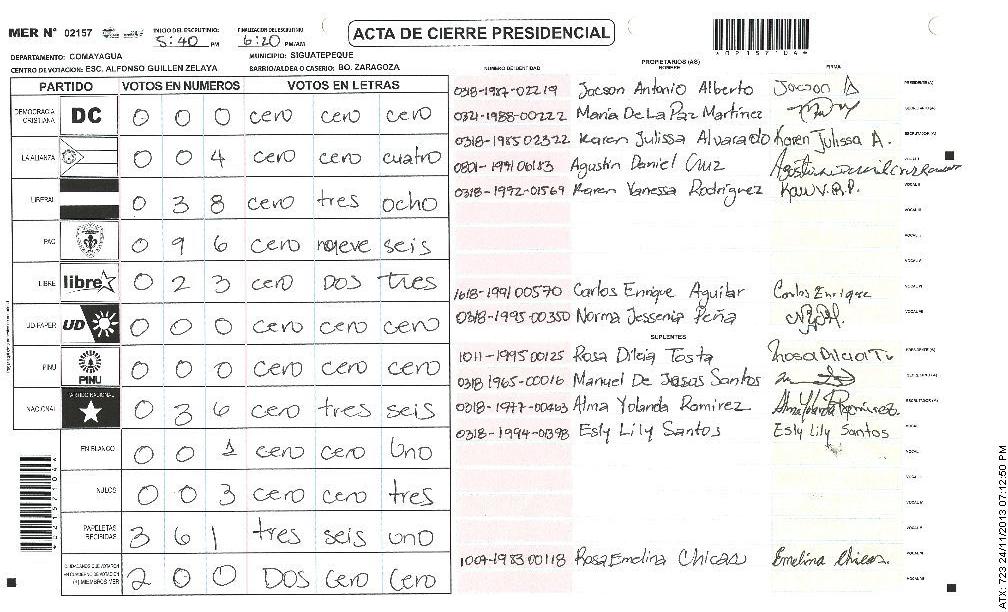 MER Nº 02157
INICIO DEL ESCRUTINIO: 5:40 PM
FINALIZACION DEL ESCRUTINIO 6:20 PM/AM
ACTA DE CIERRE PRESIDENCIAL
DEPARTAMENTO: COMAYAGUA
MUNICIPIO: SIGUATEPEQUE
CENTRO DE VOTACION: ESC. ALFONSO GUILLEN ZELAYA
BARRIO/ALDEA O CASERIO: BO. ZARAGOZA
PARTIDO VOTOS EN NUMEROS VOTOS EN LETRAS
DEMOCRACIA CRISTIANA DC 0 0 0 cero cero cero
LA ALIANZA 0 0 4 cero cero cuatro
LIBERAL 0 3 8 cero tres ocho
PAC 0 9 6 cero nueve seis
LIBRE libre 0 2 3 cero DOS tres
UD-FAPER UD 0 0 0 cero cero cero
PINU PINU 0 0 0 cero cero cero
NACIONAL PARTIDO NACIONAL 0 3 6 cero tres seis
EN BLANCO 0 0 1 cero cero uno
NULOS 0 0 3 cero cero tres
PAPELETAS RECIBIDAS 3 6 1 tres seis uno
CIUDADANOS QUE VOTARON EN CUADERNO DE VOTACION (+) MIEMBROS MER 2 0 0 DOS cero cero
NUMERO DE IDENTIDAD
PROPIETARIOS (AS)
NOMBRE
FIRMA
0318-1987-02219 Jocson Antonio Alberto Jocson A
0321-1988-00222 Maria De La Paz Martinez
0318-1985 02322 Karen Julissa Alvarado Karen Julissa A.
0801-1991 06183 Agustin Daniel Cruz
0318-1992-01569 Karen Vanessa Rodriguez
1618-1991 00570 Carlos Enrique Aguilar Carlos Enrique
0318-1995-00350 Norma Jessenia Peña
SUPLENTES
1011-1995 00125 Rosa Dilcia Tosta
0318 1965-00016 Manuel De Jesus Santos
0318-1977-00463 Alma Yolanda Ramirez
0318-1994-01398 Esly Lily Santos Esly Lily Santos
1009-1983 00118 Rosa Emelina Chicas Emelina Chicas.
*02157104*
ATX: 723 24/11/2013 07:12:50 PM